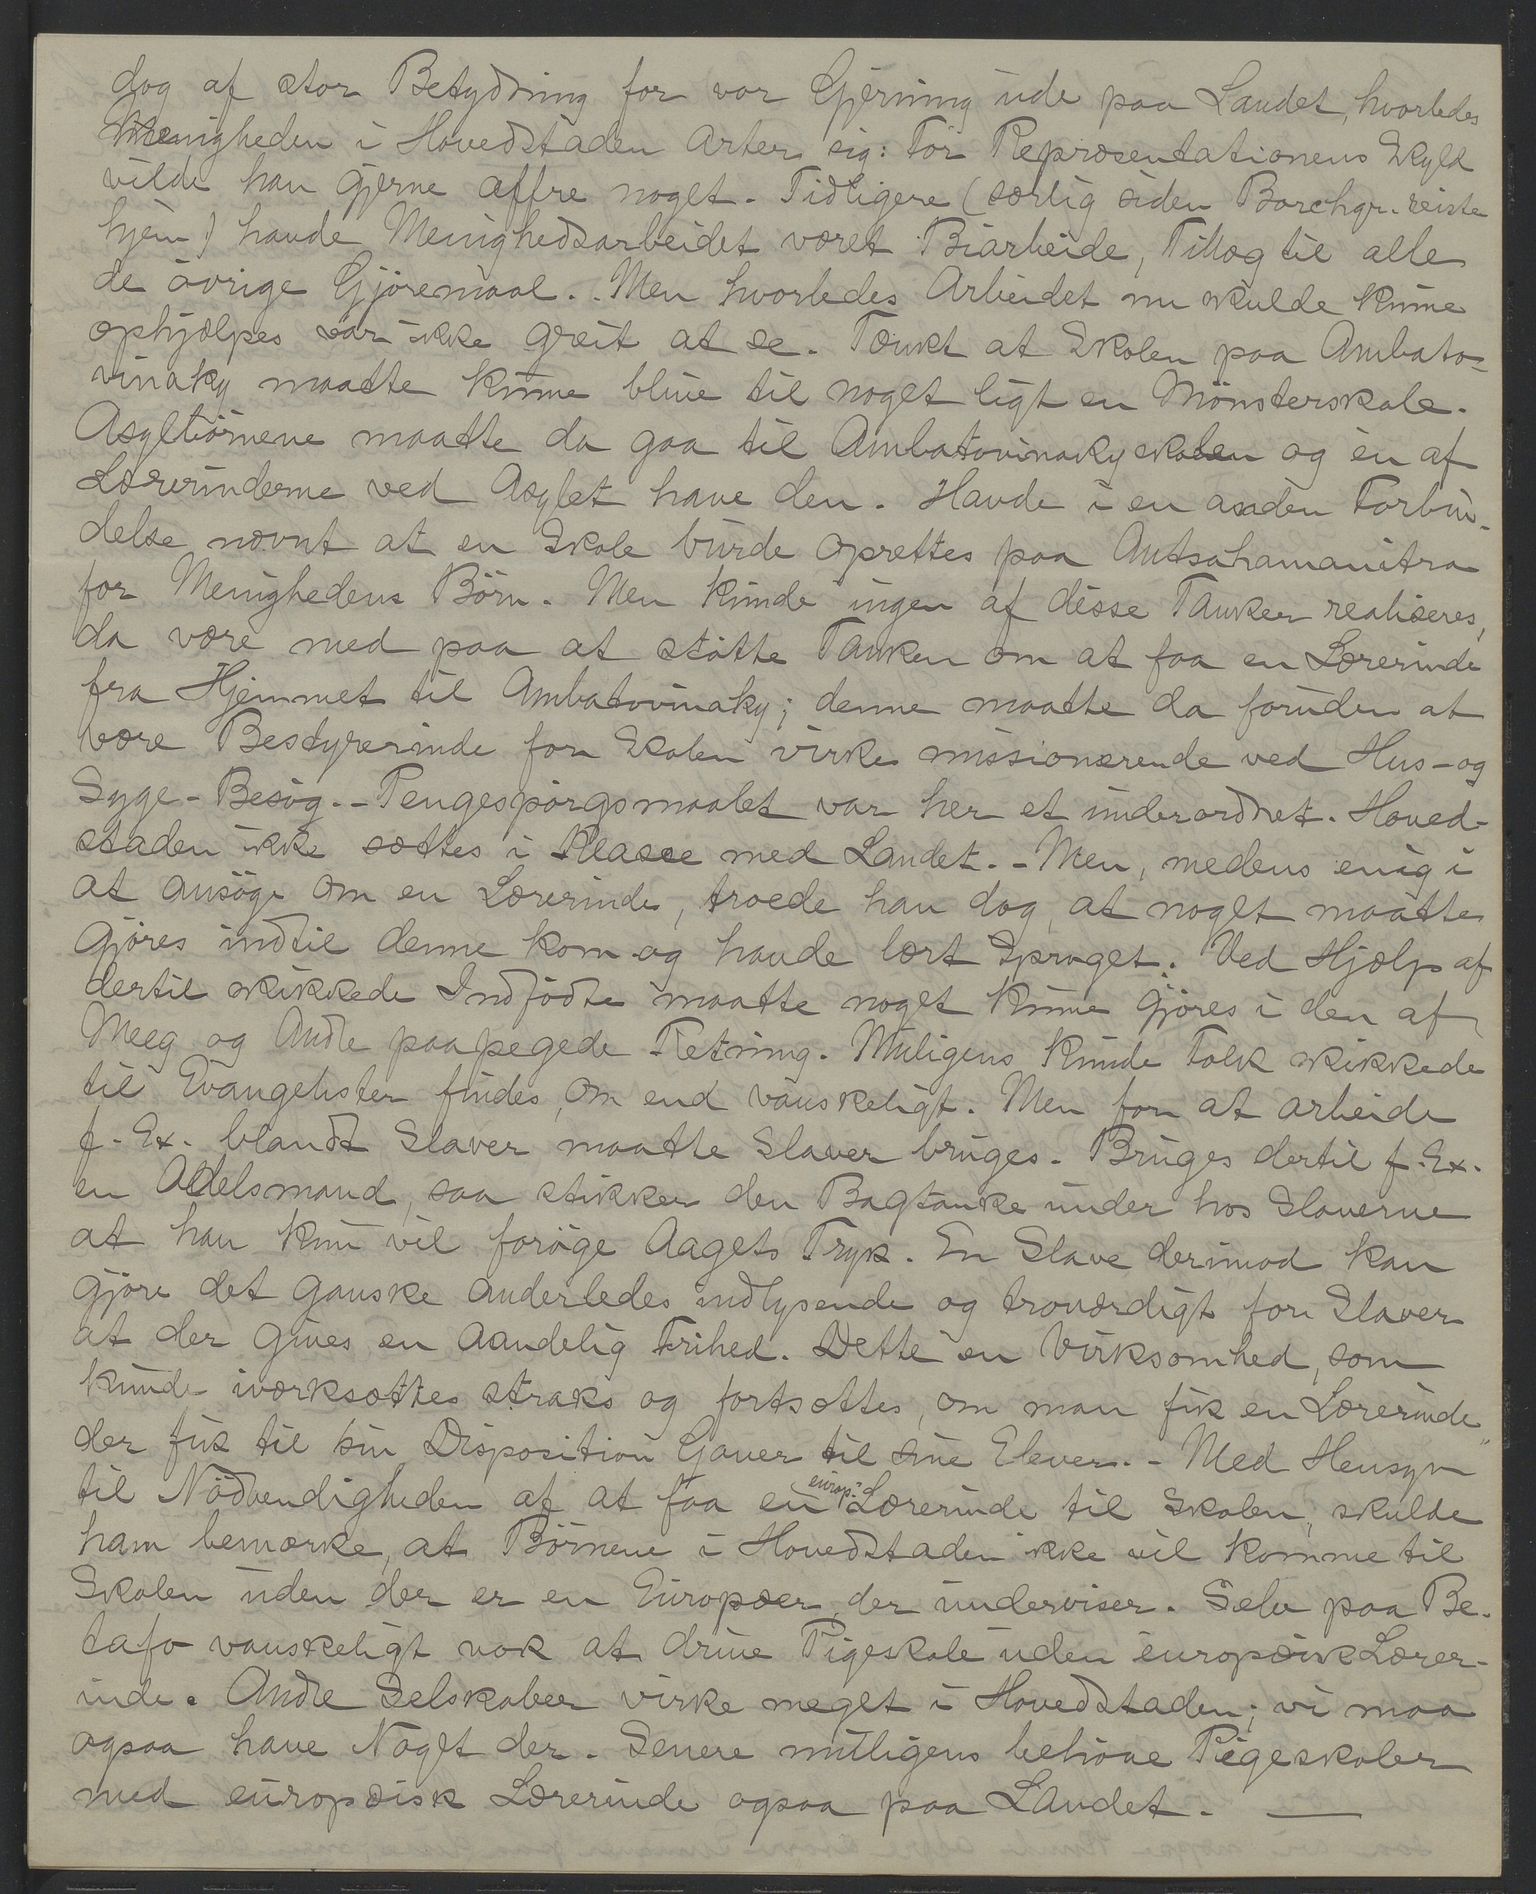 dog af stor Betydning for vor Gjerning ude paa Landet, hvorledes
Menigheden i Hovedstaden arter sig: For Repræsentationens Skyld
vilde han gjerne offre noget. Tidligere (særlig siden Borchgr. reiste
hjem) havde Menighedsarbeidet været Biarbeide, Tillæg til alle
de övrige Gjöremaal. . Men hvorledes Arbeidet nu skulde kunne
ophjælpes var ikke greit at se. Tænkt at Skolen paa Ambato-
vinaky maatte kunne blive til noget ligt en Mönsterskole.
Asylbörnene maatte da gaa til Ambatovinakyskolen og en af
Lærerinderne ved Asylet have den. Havde i en anden Forbin-
delse nævnt at en Skole burde oprettes paa Antsahamanitra
for Menighedens Börn. Men kunde ingen af disse Tanker realiseres,
da være med paa at stötte Tanken om at faa en Lærerinde
fra Hjemmet til Ambatovinaky; denne maatte da foruden at
være Bestyrerinde for Skolen virke missionerende ved Hus- og
Syge-Besög. - Pengespörgsmaalet var her et underordnet. Hoved-
staden ikke sættes i Klasse med Landet. - Men, medens enig i
at ansöge om en Lærerinde, troede han dog, at noget maatte
gjöres indtil denne kom og havde lært Sproget. Ved Hjælp af
dertil skikkede Indfödte maatte noget kunne gjöres i den af
Meeg og Andre paapegede Retning. Muligens kunde Folk skikkede
til Evangelister findes, om end vanskeligt. Men for at arbeide
f. Ex. blandt Slaver maatte Slaver bruges. Bruges dertil f. Ex.
en Adelsmand, saa stikker den Bagtanke under hos Slaverne
at han kun vil foröge Aagets Tryk. En Slave derimod kan
gjöre det ganske anderledes indlysende og troværdigt for Slaver
at der gives en aandelig Frihed. Dette en Virksomhed, som
kunde iværksættes straks og fortsættes, om man fik en Lærerinde"
der fik til sin Disposition Gaver til sine Elever. - Med Hensyn
til Nödvendigheden af at faa en europ: Lærerinde til Skolen, skulde
han bemærke, at Börnene i Hovedstaden ikke vil komme til
Skolen uden der er en Europæer, der underviser. Selv paa Be-
tafo vanskeligt nok at drive Pigeskole uden europæisk Lærer-
inde. Andre Selskaber virke meget i Hovedstaden; vi maa
ogsaa have Noget der. Senere mulligens behöve Pigeskoler
med europæisk Lærerinde ogsaa paa Landet. —